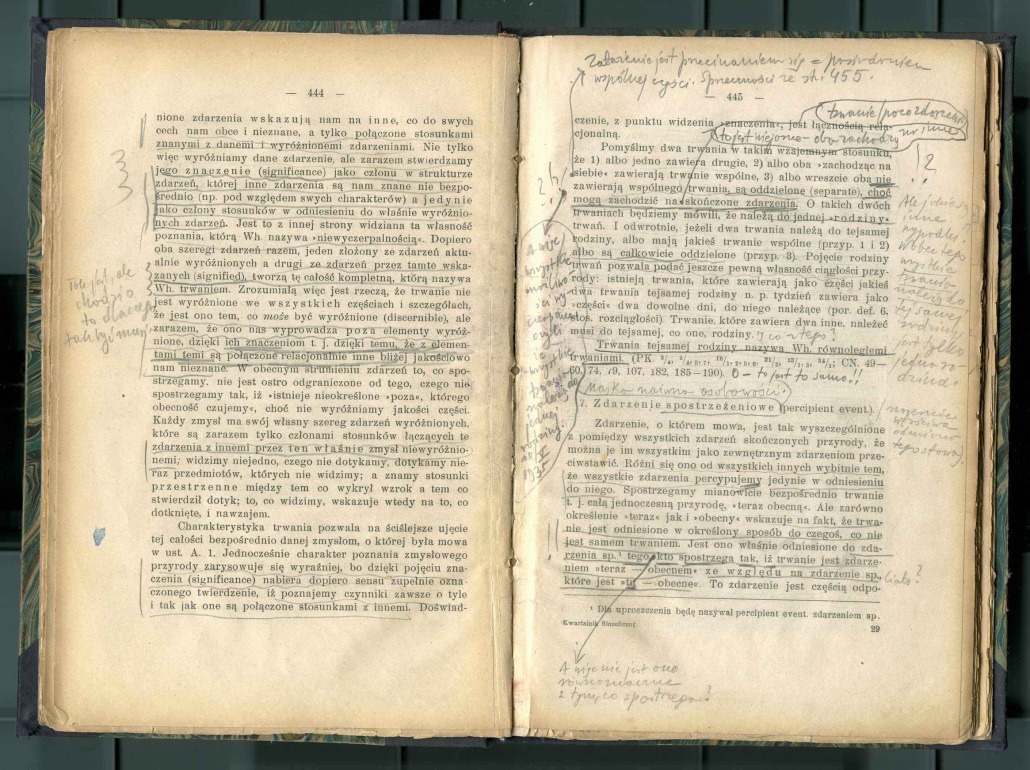 — 444 —
nione zdarzenia wskazują nam na inne, co do swych
cech nam obce i nieznane, a tylko połączone stosunkami
znanymi z danemi i wyróżnionemi zdarzeniami. Nie tylko
więc wyróżniamy dane zdarzenie, ale zarazem stwierdzamy
jego znaczenie (significance) jako członu w strukturze
zdarzeń, której inne zdarzenia są nam znane nie bezpo-
średnio (np. pod względem swych charakterów) a jedynie
jako człony stosunków w odniesieniu do właśnie wyróżnio-
nych zdarzeń. Jest to z innej strony widziana ta własność
poznania, którą Wh nazywa »niewyczerpalnością«. Dopiero
oba szeregi zdarzeń razem, jeden złożony ze zdarzeń aktu-
alnie wyróżnionych a drugi ze zdarzeń przez tamte wska-
zanych (signified), tworzą tę całość kompletną, którą nazywa
Wh. trwaniem. Zrozumiałą więc jest rzeczą, że trwanie nie
jest wyróżnione we wszystkich częściach i szczegółach,
że jest ono tem, co może być wyróżnione (discernible), ale
zarazem, że ono nas wyprowadza poza elementy wyróż-
nione, dzięki ich znaczeniom t. j. dzięki temu, że z elemen-
tami temi są połączone relacjonalnie inne bliżej jakościowo
nam nieznane. W obecnym strumieniu zdarzeń to, co spo-
strzegamy, nie jest ostro odgraniczone od tego, czego nie
spostrzegamy tak, iż »istnieje nieokreślone »poza«, którego
obecność czujemy«, choć nie wyróżniamy jakości części.
Każdy zmysł ma swój własny szereg zdarzeń wyróżnionych,
które są zarazem tylko członami stosunków łączących te
zdarzenia z innemi przez ten właśnie zmysł niewyróżnio-
nemi; widzimy niejedno, czego nie dotykamy, dotykamy nie-
raz przedmiotów, których nie widzimy; a znamy stosunki
przestrzenne między tem co wykrył wzrok a tem co
stwierdził dotyk; to, co widzimy, wskazuje wtedy na to, co
dotknięte, i nawzajem.
Charakterystyka trwania pozwala na ściślejsze ujęcie
tej całości bezpośrednio danej zmysłom, o której była mowa
w ust. A. 1. Jednocześnie charakter poznania zmysłowego
przyrody zarysowuje się wyraźniej, bo dzięki pojęciu zna-
czenia (significance) nabiera dopiero sensu zupełnie ozna-
czonego twierdzenie, iż poznajemy czynniki zawsze o tyle
i tak jak one są połączone stosunkami z innemi. Doświad-
Zdarzenie jest przecinaniem się = posiadaniem
wspólnej części. Sprzeczności ze str. 455.
— 445 —
czenie, z punktu widzenia »znaczenia«, jest łącznością rela-
cjonalną.
Pomyślmy dwa trwania w takim wzajemnym stosunku,
że 1) albo jedno zawiera drugie, 2) albo oba »zachodząc na
siebie« zawierają trwanie wspólne, 3) albo wreszcie oba nie
zawierają wspólnego trwania, są oddzielone (separate), choć
mogą zachodzić na skończone zdarzenia. O takich dwóch
trwaniach będziemy mówili, że należą do jednej »rodziny«
trwań. I odwrotnie, jeżeli dwa trwania należą do tejsamej
rodziny, albo mają jakieś trwanie wspólne (przyp. 1 i 2)
albo są całkowicie oddzielone (przyp. 3). Pojęcie rodziny
trwań pozwala podać jeszcze pewną własność ciągłości przy-
rody: istnieją trwania, które zawierają jako części jakieś
dwa trwania tejsamej rodziny n. p. tydzień zawiera jako
»części« dwa dowolne dni, do niego należące (por. def. 6.
stos. rozciągłości). Trwanie, które zawiera dwa inne, należeć
musi do tejsamej, co one, rodziny.
Trwania tejsamej rodziny nazywa Wh. równoległemi
trwaniami. (PK. CN. 49—
60, 74, 79, 107, 182, 185—190). 0 – to jest to samo!!
Maska naiwna osobowości.
7. Zdarzenie spostrzeżeniowe (percipient event).
Zdarzenie, o którem mowa, jest tak wyszczególnione
z pomiędzy wszystkich zdarzeń skończonych przyrody, że
można je im wszystkim jako zewnętrznym zdarzeniom prze-
ciwstawić. Różni się ono od wszystkich innych wybitnie tem,
że wszystkie zdarzenia percypujemy jedynie w odniesieniu
do niego. Spostrzegamy mianowicie bezpośrednio trwanie
t. j. całą jednoczesną przyrodę, »teraz obecną«. Ale zarówno
określenie »teraz« jak i »obecny« wskazuje na fakt, że trwa-
nie jest odniesione w określony sposób do czegoś, co nie
jest samem trwaniem. Jest ono właśnie odniesione do zda-
rzenia sp.¹ tego, kto spostrzega tak, iż trwanie jest zdarze-
niem »teraz — obecnem« ze względu na zdarzenie sp.,
które jest »tu — obecne«. To zdarzenie jest częścią odpo-
ciało?
¹ Dla uproszczenia będę nazywał percipient event. zdarzeniem sp.
Kwartalnik filozoficzny
29
A więc nie jest ono
równoznaczne
z tym, co spostrzega?